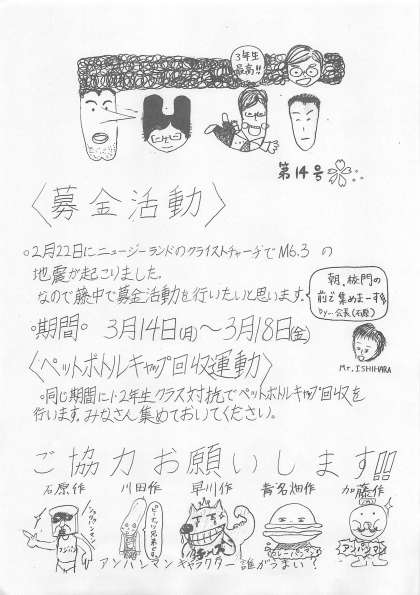 3年生
最高!!
第14号
〈募金活動〉
○2月22日にニュージーランドのクライストチャーチでM6.3の
地震が起こりました。
なので藤中で募金活動を行いたいと思います。
朝、校門の
前で集めまーす
by-会長(石原)
Mr.ISHIHARA
○期間○ 3月14日(月)〜3月18日(金)
〈ペットボトルキャップ回収運動〉
○同じ期間に1・2年生クラス対抗でペットボトルキャップ回収を
行います。みなさん集めておいてください。
ご協力お願いします!!
石原作 川田作 早川作 青名畑作 加藤作
カレーパンマン
アンパンマン
アンパンマンキャラクター誰がうまい?